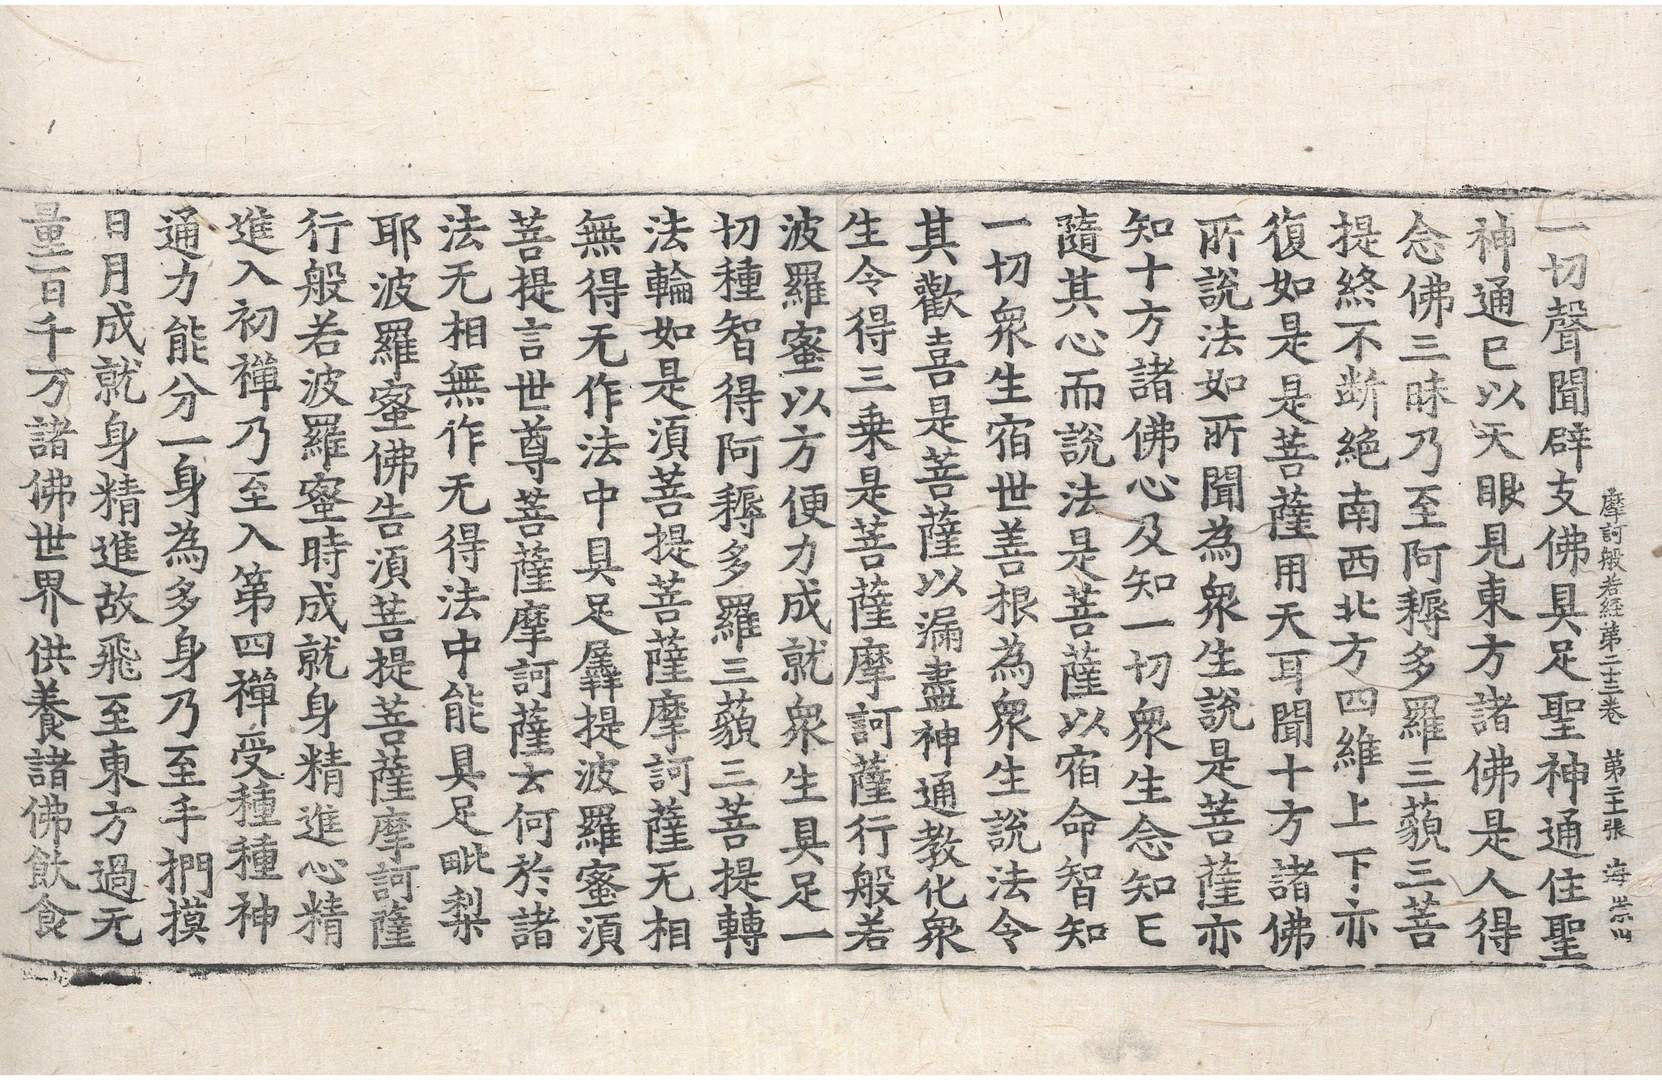 摩訶般若經第二十三卷 第二十張 海 崇山
一切聲聞辟支佛具足聖神通住聖
神通已以天眼見東方諸佛是人得
念佛三昧乃至阿耨多羅三藐三菩
提終不断絶南西北方四維上下亦
復如是是菩薩用天耳聞十方諸佛
所說法如所聞為衆生說是菩薩亦
知十方諸佛心及知一切衆生念知已
隨其心而說法是菩薩以宿命智知
一切衆生宿世善根為衆生說法令
其歡喜是菩薩以漏盡神通教化衆
生令得三乗是菩薩摩訶薩行般若
波羅蜜以方便力成就衆生具足一
切種智得阿耨多羅三藐三菩提轉
法輪如是湏菩提菩薩摩訶薩无相
無得无作法中具足羼提波羅蜜湏
菩提言世尊菩薩摩訶薩云何於諸
法无相無作无得法中能具足毗梨
耶波羅蜜佛告湏菩提菩薩摩訶薩
行般若波羅蜜時成就身精進心精
進入初禪乃至入第四禪受種種神
通力能分一身為多身乃至手捫摸
日月成就身精進故飛至東方過无
量百千万諸佛世界供養諸佛飲食